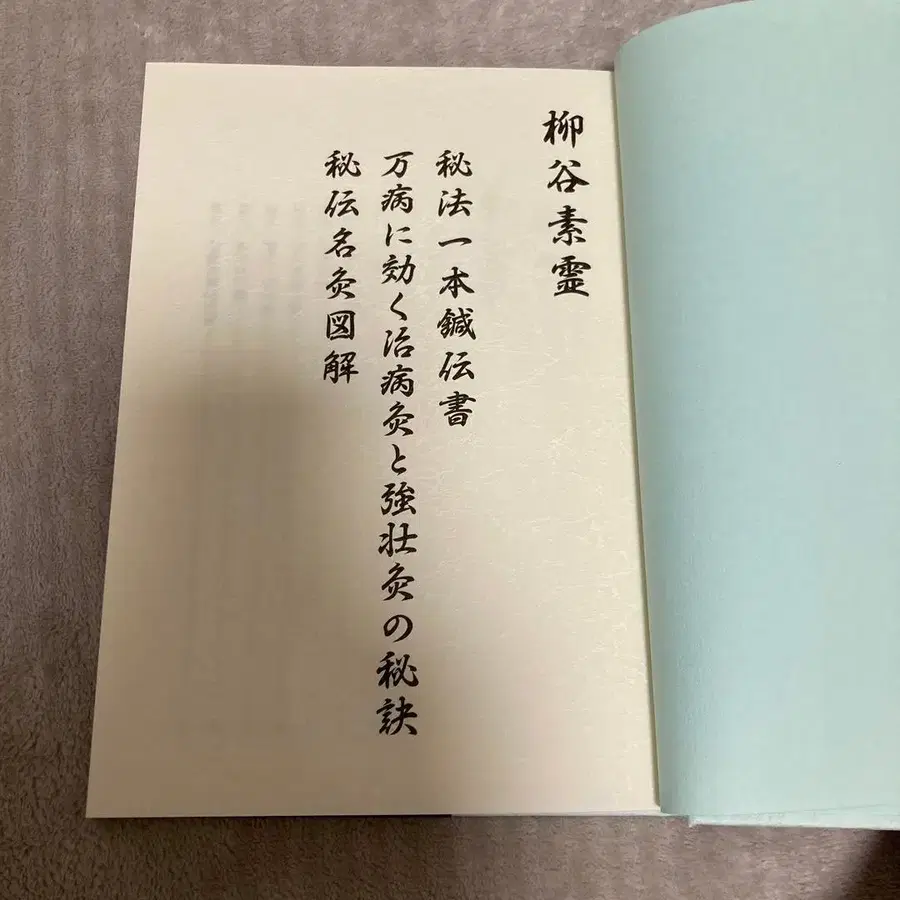 柳谷素霊
秘法一本鍼伝書
万病に効く治病灸と強壮灸の秘訣
秘伝名灸図解